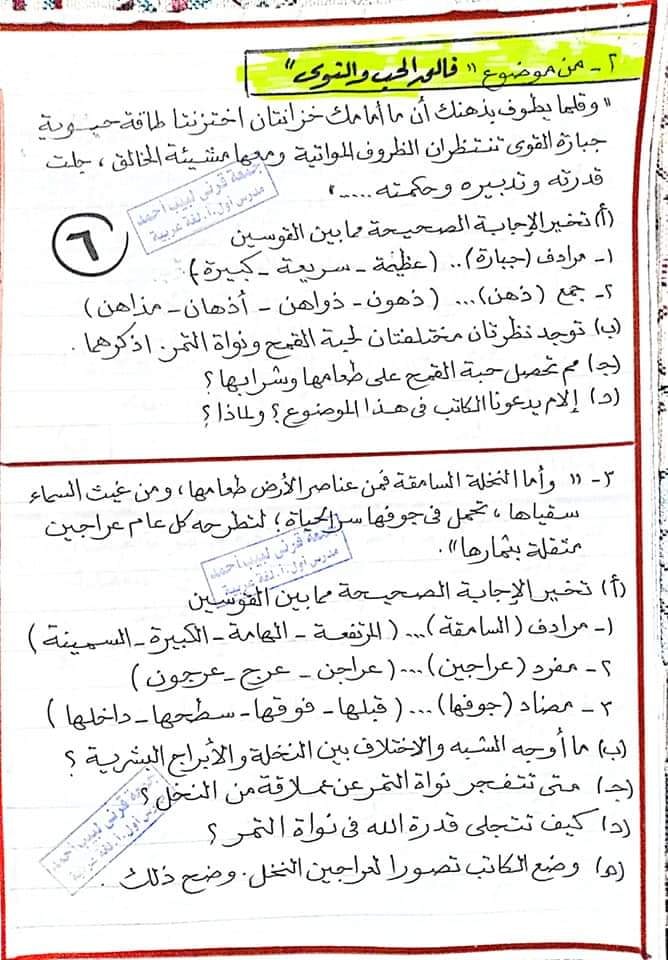 ٢- من موضوع "فالق الحب والنوى"
"وقلما يطوف بذهنك أن ما أمامك خزانتان اختزنتا طاقة حيوية
جبارة القوى تنتظران الظروف المواتية ومعها مشيئة الخالق، جلت
قدرته وتدبيره وحكمته....."
جمعة قرني لبيب أحمد
مدرس أول أ. لغة عربية
٦
(أ) تخير الإجابة الصحيحة مما بين القوسين
١- مرادف (جبارة).. (عظيمة - سريعة - كبيرة).
٢- جمع (ذهن)... (ذهون - ذواهن - أذهان - مذاهن)
(ب) توجد نظرتان مختلفتان لحبة القمح ونواة التمر. اذكرهما.
(ج) مم تحصل حبة القمح على طعامها وشرابها؟
(د) إلام يدعونا الكاتب في هذا الموضوع؟ ولماذا؟
٣- "وأما النخلة السامقة فمن عناصر الأرض طعامها، ومن غيث السماء
سقياها، تحمل في جوفها سر الحياة؛ لتطرحه كل عام عراجين
مثقلة بثمارها".
جمعة قرني لبيب أحمد
مدرس أول أ. لغة عربية
(أ) تخير الإجابة الصحيحة مما بين القوسين
١- مرادف (السامقة)... (المرتفعة - الهامة - الكبيرة - السمينة)
٢- مفرد (عراجين)... (عراجن - عرج - عرجون)
٣- مضاد (جوفها)... (قبلها - فوقها - سطحها - داخلها)
(ب) ما أوجه الشبه والاختلاف بين النخلة والأبراج البشرية؟
(ج) متى تتفجر نواة التمر عن عملاقة من النخل؟
(د) كيف تتجلى قدرة الله في نواة التمر؟
(ه) وضع الكاتب تصورا لعراجين النخل. وضح ذلك.
جمعة قرني لبيب أحمد
مدرس أول أ. لغة عربية